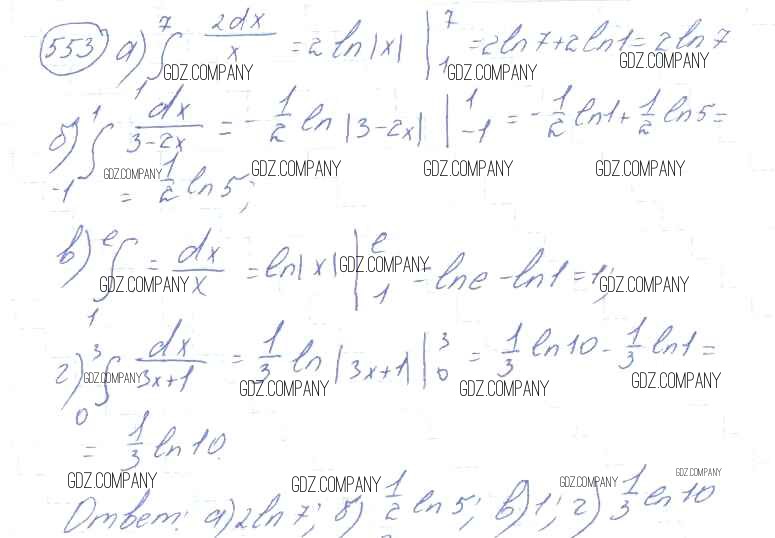 553 а) ∫₁⁷ 2dx/x = 2 ln|x| |₁⁷ = 2ln7+2ln1= 2ln7
GDZ.COMPANY GDZ.COMPANY GDZ.COMPANY
б) ∫₋₁¹ dx/(3-2x) = -1/2 ln |3-2x| |₋₁¹ = -1/2 ln1+ 1/2 ln5=
GDZ.COMPANY GDZ.COMPANY GDZ.COMPANY GDZ.COMPANY
= 1/2 ln5;
в) ∫₁ᵉ = dx/x = ln|x| |₁ᵉ = lne - ln1 = 1;
GDZ.COMPANY GDZ.COMPANY GDZ.COMPANY
г) ∫₀³ dx/(3x+1) = 1/3 ln |3x+1| |₀³ = 1/3 ln10 - 1/3 ln1 =
GDZ.COMPANY GDZ.COMPANY GDZ.COMPANY GDZ.COMPANY
= 1/3 ln10.
GDZ.COMPANY GDZ.COMPANY GDZ.COMPANY GDZ.COMPANY
Ответ: а) 2ln7; б) 1/2 ln5; в) 1; г) 1/3 ln10